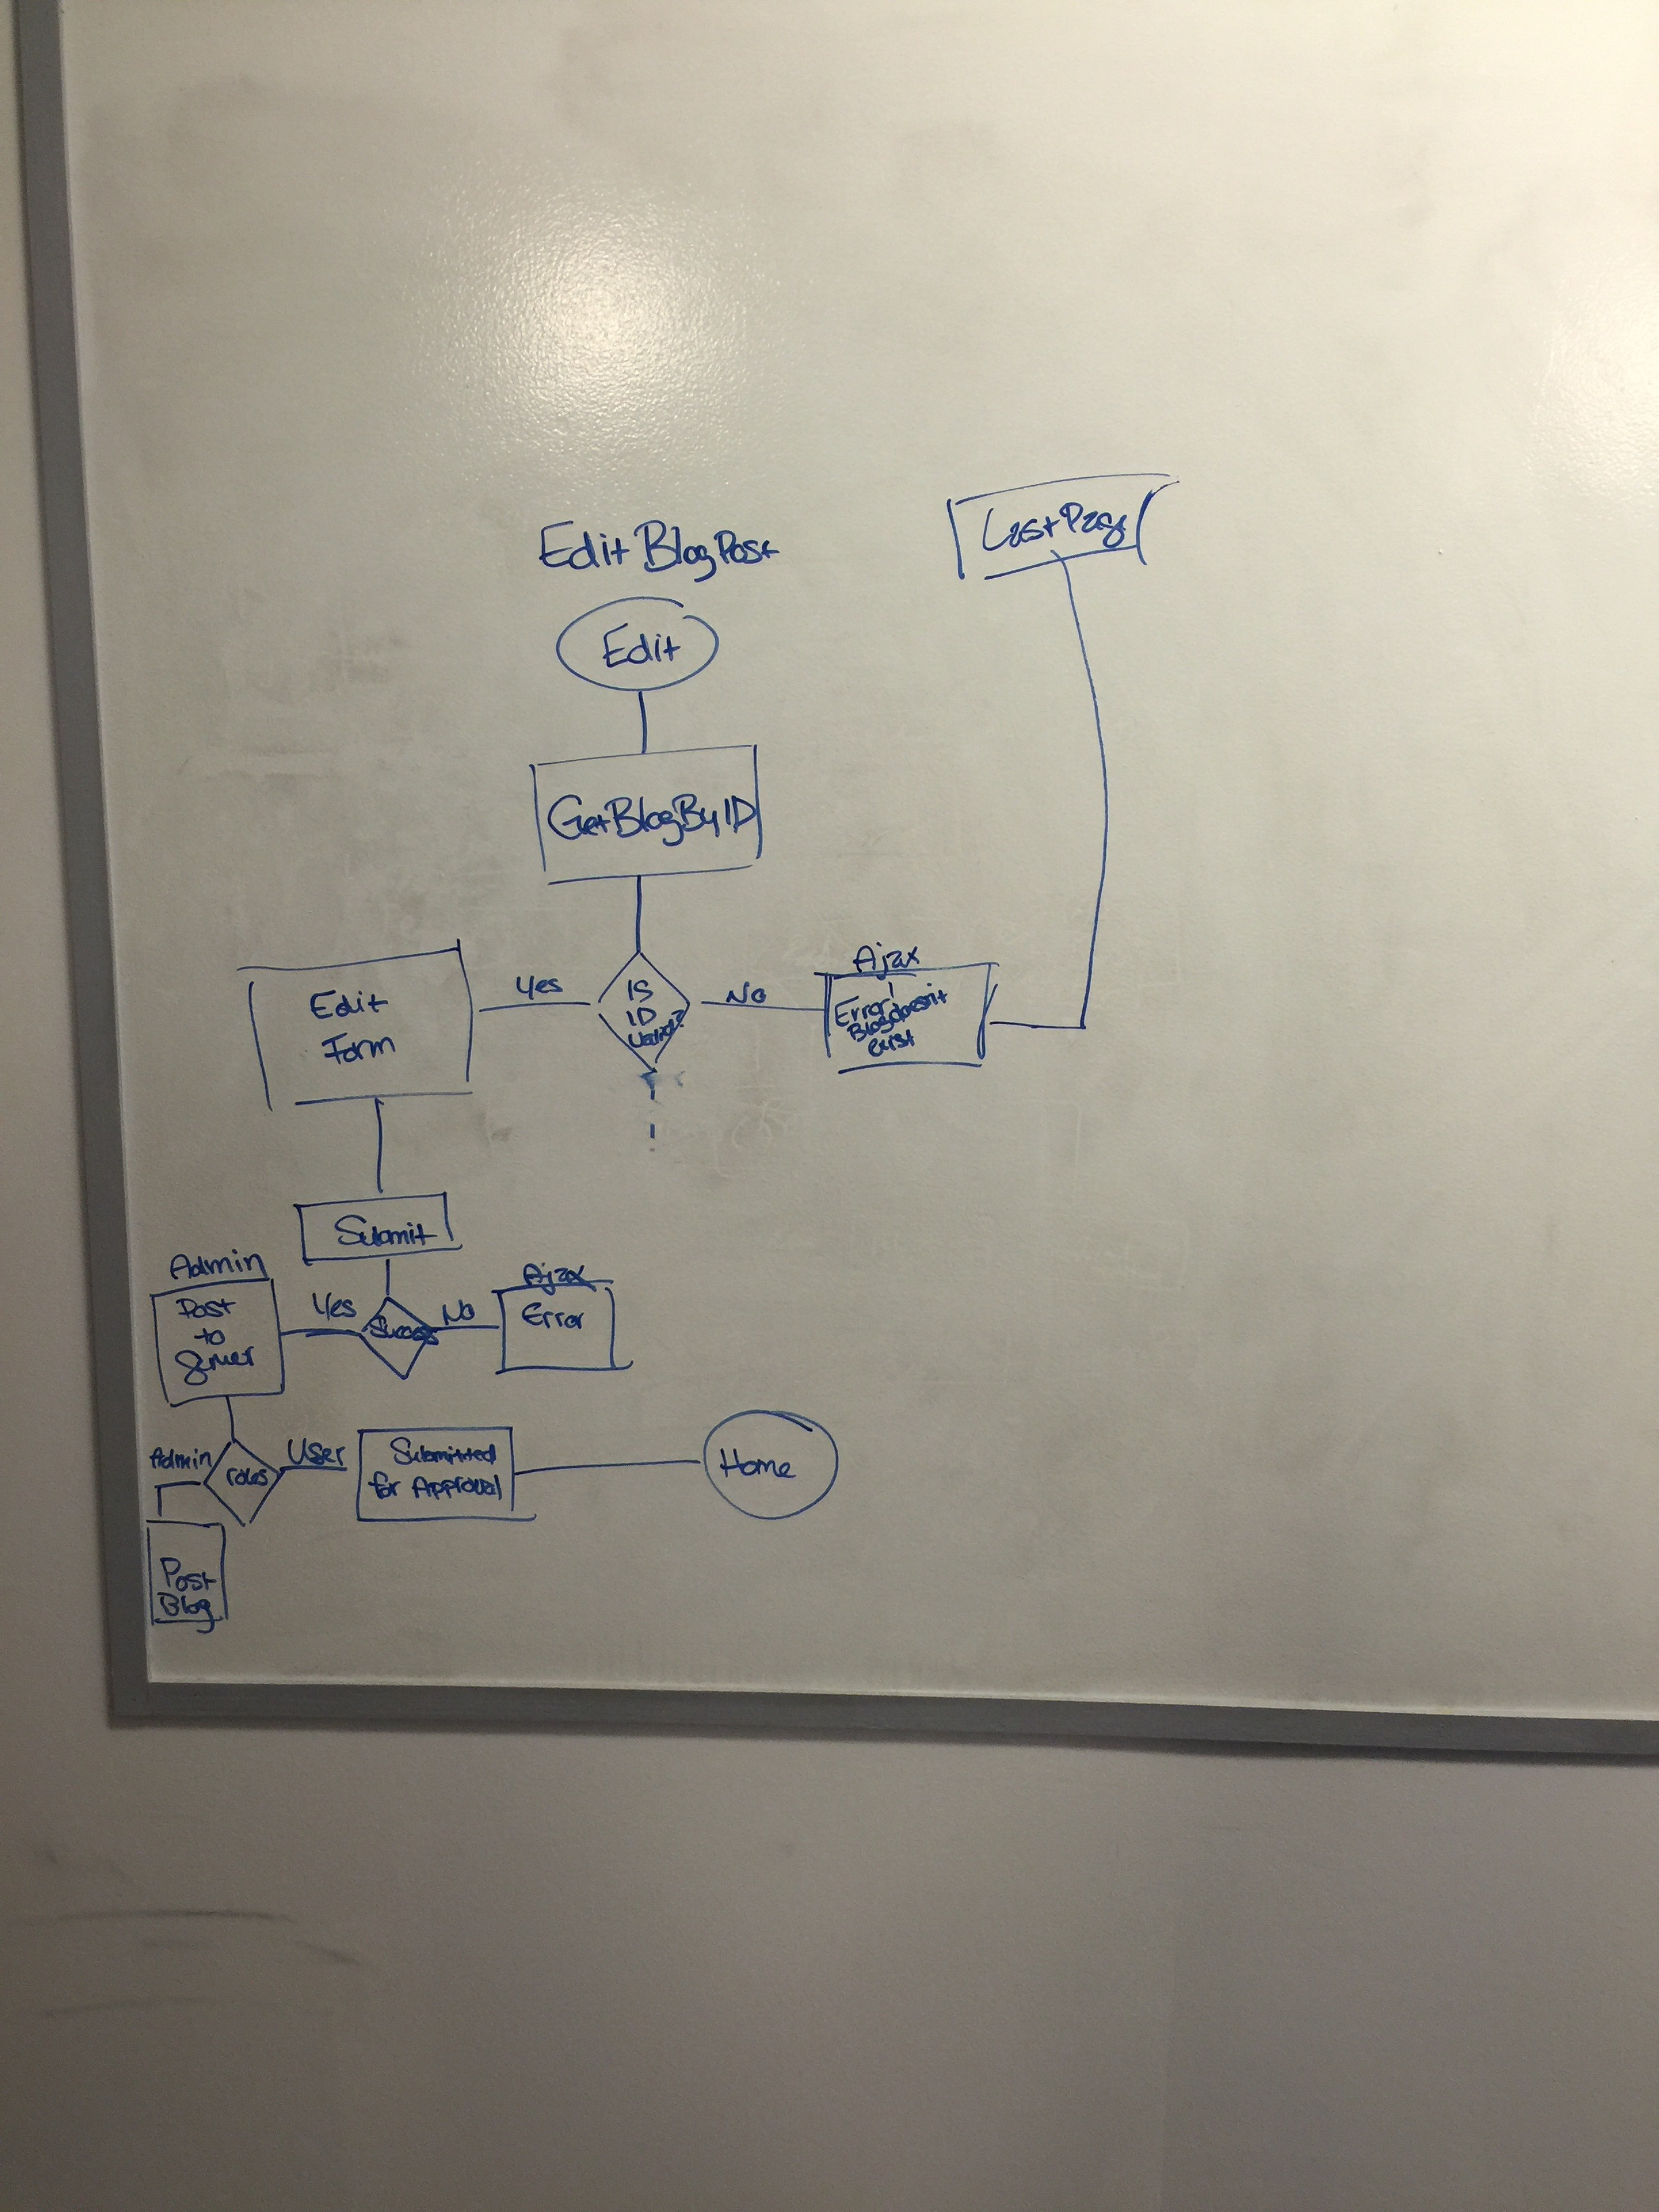 Edit Blog Post
Last Page
Edit
GetBlogByID
Yes
IS
ID
Valid?
No
Ajax
Error!
Blog doesn't
exist
Edit
Form
Submit
Admin
Post
to
Server
Yes
Success
No
Ajax
Error
Admin
roles
User
Submitted
for Approval
Home
Post
Blog